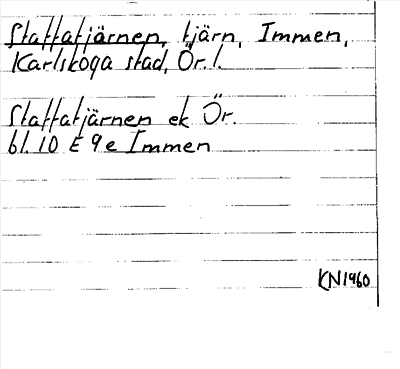 Staffatjärnen, tjärn, Immen,
Karlskoga stad, Ör. l.
Staffatjärnen ek Ör.
bl. 10 E 9 e Immen
KN1960